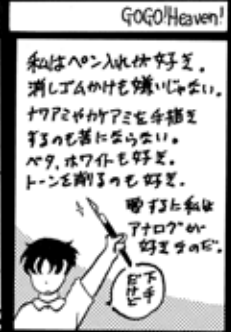 GOGO!Heaven!
私はペン入れが好き。
消しゴムかけも嫌いじゃない。
ナワアミやカケアミを手描き
するのも苦にならない。
ベタ、ホワイトも好き。
トーンを削るのも好き。
要するに私は
アナログが
好きなのだ。
下手
だけど